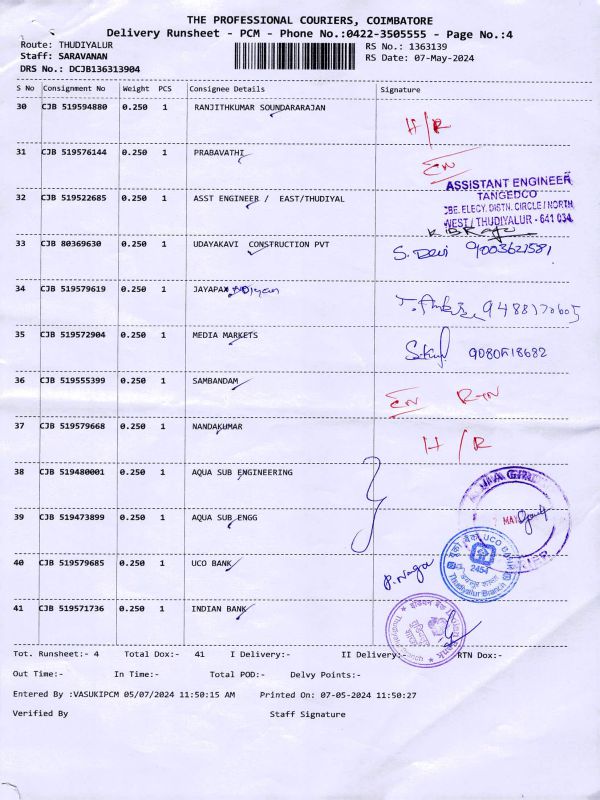 THE PROFESSIONAL COURIERS, COIMBATORE
Delivery Runsheet - PCM - Phone No.:0422-3505555 - Page No.:4
Route: THUDIYALUR RS No.: 1363139
Staff: SARAVANAN RS Date: 07-May-2024
DRS No.: DCJB136313904
S No Consignment No Weight PCS Consignee Details Signature
30 CJB 519594880 0.250 1 RANJITHKUMAR SOUNDARARAJAN
H/R
31 CJB 519576144 0.250 1 PRABAVATHI
EN
ASSISTANT ENGINEER
TANGEDCO
CBE. ELECY. DISTN. CIRCLE / NORTH
WEST / THUDIYALUR - 641 034
32 CJB 519522685 0.250 1 ASST ENGINEER / EAST/THUDIYAL
33 CJB 80369630 0.250 1 UDAYAKAVI CONSTRUCTION PVT
S. Devi 9003621581
34 CJB 519579619 0.250 1 JAYAPA
9488170605
35 CJB 519572904 0.250 1 MEDIA MARKETS
9080518682
36 CJB 519555399 0.250 1 SAMBANDAM
EN RTN
37 CJB 519579668 0.250 1 NANDAKUMAR
H/R
38 CJB 519480001 0.250 1 AQUA SUB ENGINEERING
39 CJB 519473899 0.250 1 AQUA SUB ENGG
MAY
40 CJB 519579685 0.250 1 UCO BANK
P. Naga
यूको बैंक UCO BANK
2454
Thudiyalur Branch
41 CJB 519571736 0.250 1 INDIAN BANK
Tot. Runsheet:- 4 Total Dox:- 41 I Delivery:- II Delivery:- RTN Dox:-
Out Time:- In Time:- Total POD:- Delvy Points:-
Entered By :VASUKIPCM 05/07/2024 11:50:15 AM Printed On: 07-05-2024 11:50:27
Verified By Staff Signature